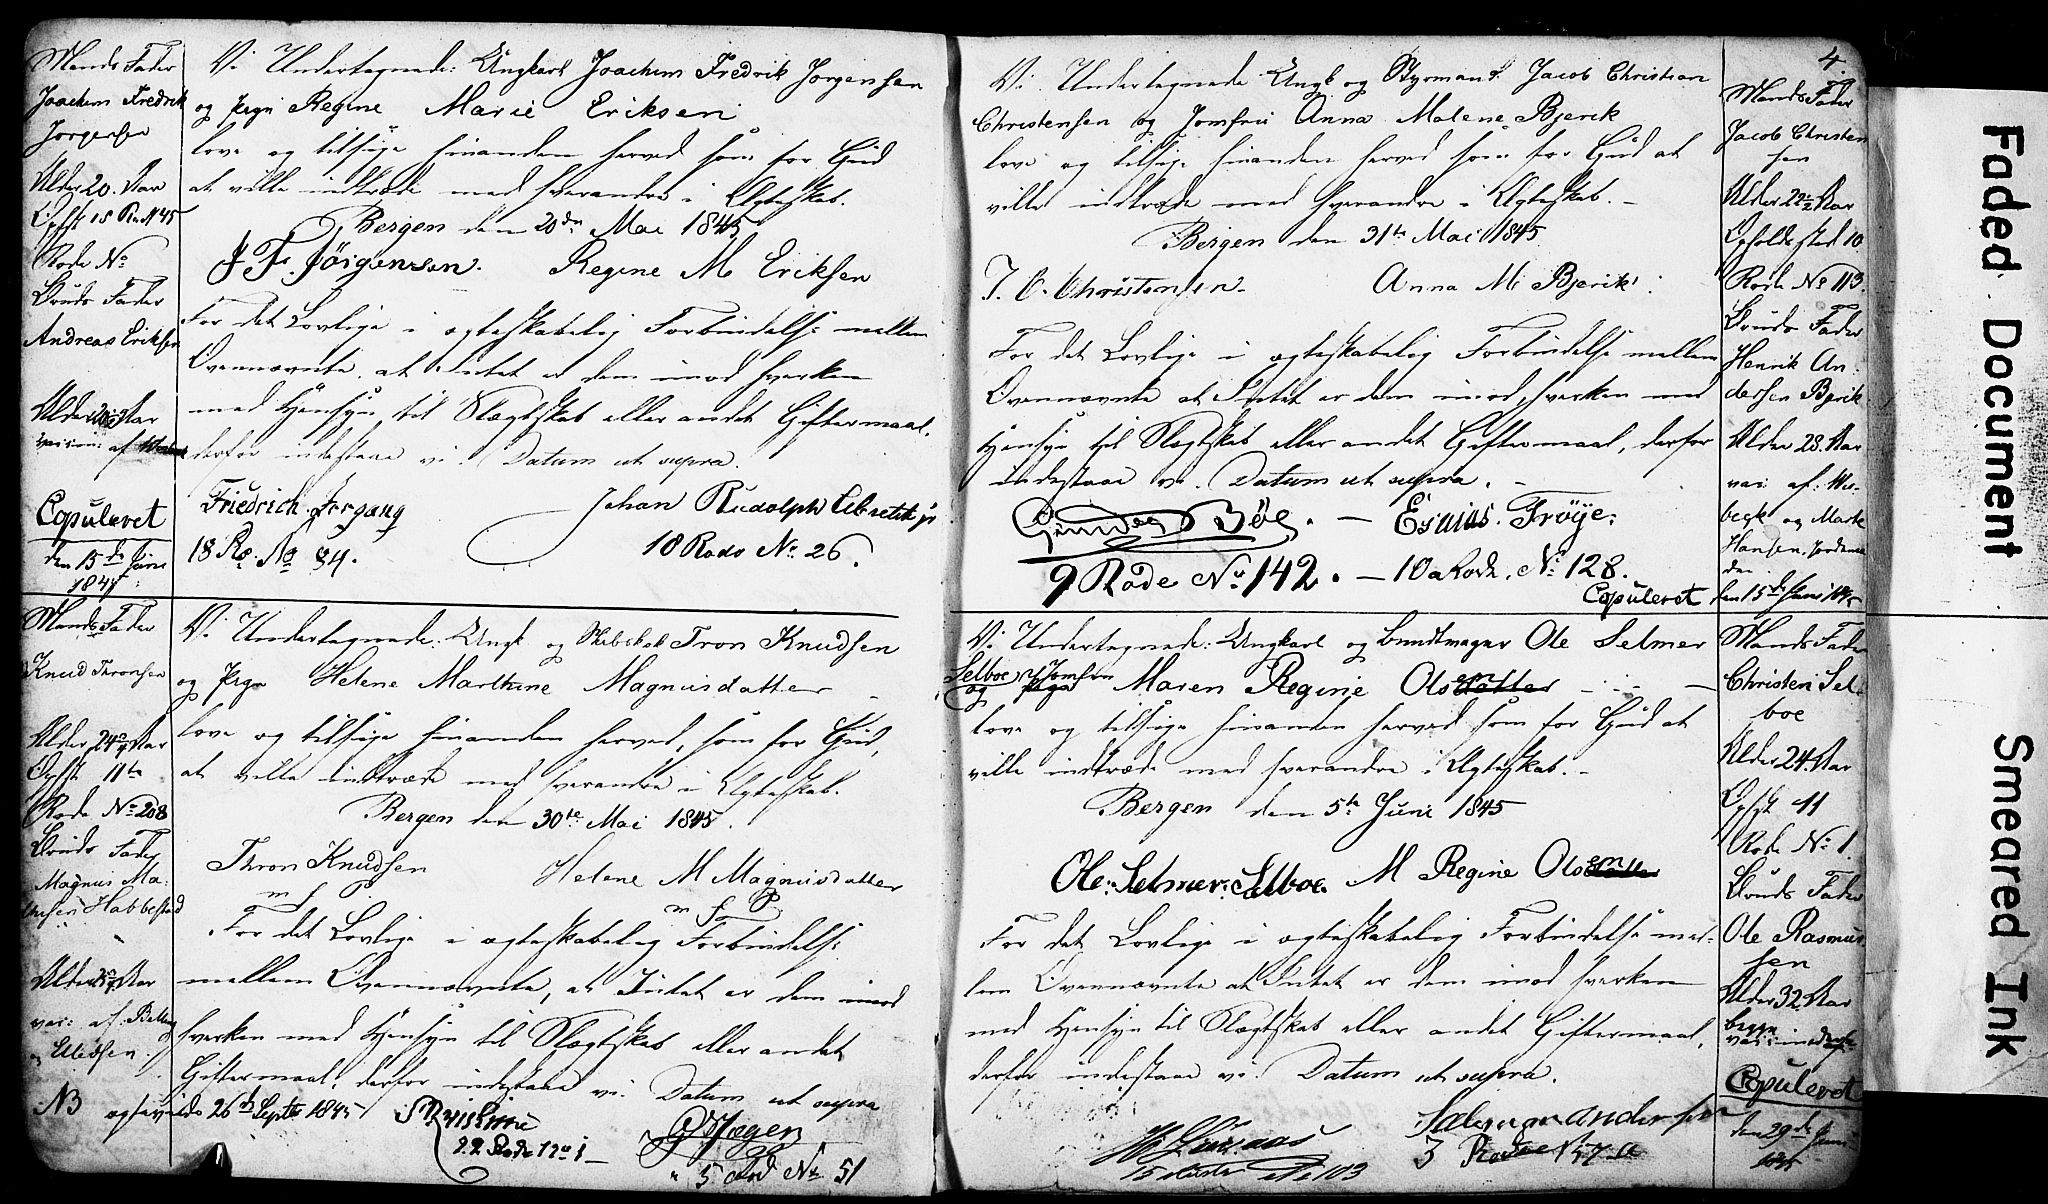 Mands Fader
Joachim Fredrik
Jørgensen
Alder 20. Aar
Opst 18 Ro N 45
Rode No
Bruds Fader
Andreas Eriksen
Alder Aar
vac: af
Copuleret
den 15de Juni
1845
Vi Undertegnede: Ungkarl Joachim Fredrik Jørgensen
og Pige Regine Marie Eriksen
love og tilsige hinanden herved som for Gud
at ville indtræde med hverandre i Ægteskab.
Bergen den 20de Mai 1845
J F. Jörgensen. Regine M Eriksen
For det Lovlige i ægteskabelig Forbindelse mellem
Ovennævnte, at Intet er dem imod hverken
med Hensyn til Slægtskab eller andet Giftermaal,
derfor indestaae vi. Datum ut supra.
Friedrich Irgang Johan Rudolph
18 Ro. No 84. 18 Rode No 26.
Mands Fader
Knud Thronsen
Alder 24 Aar
Opst 11te
Rode No 208
Bruds Fader
Magnus Ma-
Habbestad
Alder Aar
vac: af:
NB
Vi Undertegnede: Ungk og Tron Knudsen
og Pige Helene Marthine Magnusdatter
love og tilsige hinanden herved, som for Gud,
at ville indtræde med hverandre i Ægteskab.
Bergen den 30te Mai 1845.
Thron Knudsen Helene M Magnusdatter
m f P m f P
For det Lovlige i ægteskabelig Forbindelse
mellem Ovennævnte, at Intet er dem imod
hverken med Hensyn til Slægtskab eller andet
Giftermaal, derfor indestaae vi. Datum ut supra
26de Septr 1845
22 Rode No 1
5 Rod No 51
4.
Vi Undertegnede Ungk og Styrmand. Jacob Christian
Christensen og Jomfru Anna Malene Bjerik
love og tilsige hinanden herved som for Gud at
ville indtræde med hverandre i Ægteskab. -
Bergen den 31te Mai 1845
J. C. Christensen. Anna M. Bjerik
For det Lovlige i ægteskabelig Forbindelse mellem
Ovennævnte at Intet er dem imod, hverken med
Hensyn til Slægtskab eller andet Giftermaal, derfor
indestaae vi. Datum ut supra. -
Böe. - Esaias. Tröye.
9 Rode No 142. - 10 a Rode. No 128.
Copuleret
Mands Fader
Jacob Christen
sen
Alder 22 1/2 Aar
Opholdssted 10
Rode No 113.
Bruds Fader
Henrik An-
dersen Bjerik
Alder 28. Aar
vac: af:
og
Hansen,
den 15de Juni 1845
Vi Undertegnede: Ungkarl og Bundtmager Ole Selmer
Selboe Jomfru
og Pige Maren Regine Olsen
love og tilsige hinanden herved som for Gud at
ville indtræde med hverandre i Ægteskab. -
Bergen den 5te Juni 1845
Ole: Selmer: Selboe. M Regine Olsen
For det Lovlige i ægteskabelig Forbindelse mel-
lem Ovennævnte at Intet er dem imod hverken
med Hensyn til Slægtskab eller andet Giftermaal,
derfor indestaae vi. Datum ut supra.
3 Rode
103
Mands Fader
Christen Sel-
boe
Alder 24 Aar
Opst 11
Rode No 1.
Bruds Fader
Ole Rasmus-
sen
Alder 32 Aar
begge
Copuleret
den 29de Juni
1845
Faded Document
Smeared Ink